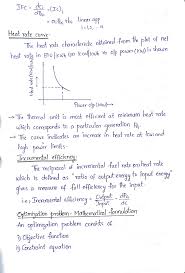 IFC = dci/dPi = (IC)i
Heat rate curve:
The heat rate characteristic obtained from the plot of net
heat rate in Btu/kWh (or) kcal/kWh vs o/p power (kW) is shown
Power o/p (MW)
→ The thermal unit is most efficient at minimum heat rate
which corresponds to a particular generation PG
→ The curve indicates an increase in heat rate at low and
high power limits.
Incremental efficiency:
The reciprocal of incremental fuel rate or heat rate
which is defined as "ratio of output energy to input energy"
gives a measure of fuel efficiency for the input.
i.e., Incremental efficiency = output/input = dPG/dC
Optimization problem - Mathematical formulation
An optimization problem consists of
i) Objective function
ii) Constraint equation